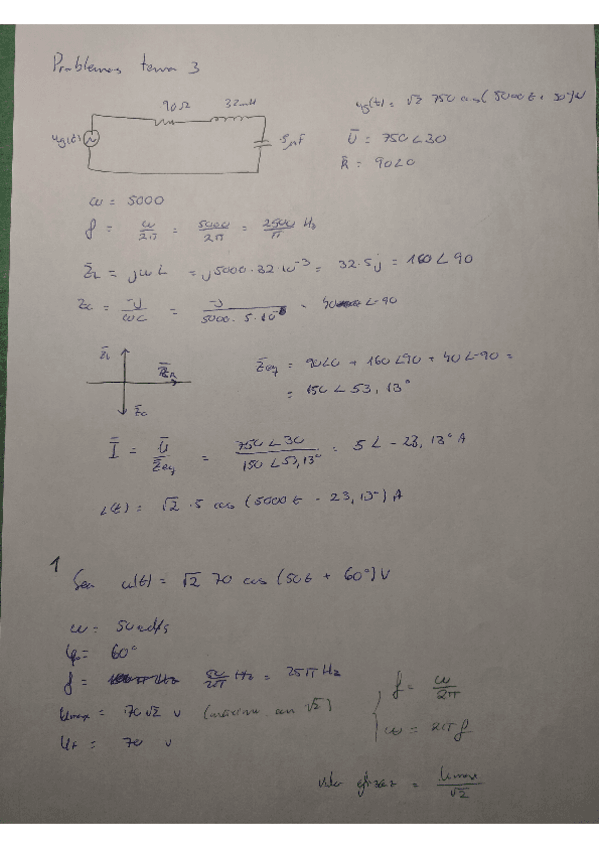 Problemas tema 3
90Ω 32mH
ug(t) = √2 750 cos(5000t + 30°)V
ug(t) 5µF
Ū = 750∠30
R̄ = 90∠0
ω = 5000
f = ω/2π = 5000/2π = 2500/π Hz
Z̄L = jωL = j5000·32·10⁻³ = 32·5j = 160∠90
Zc = -j/ωC = -j/5000·5·10⁻⁶ = 40∠-90
Z̄L
Z̄R
Z̄c
Z̄eq = 90∠0 + 160∠90 + 40∠-90 =
= 150∠53,13°
Ī = Ū/Z̄eq = 750∠30/150∠53,13° = 5∠-23,13° A
i(t) = √2·5 cos(5000t - 23,13°) A
1
Sea u(t) = √2 70 cos(50t + 60°) V
ω = 50rad/s
φ = 60°
f = 50/2π Hz = 25π Hz
f = ω/2π
Umax = 70√2 V √2)
ω = 2πf
Uef = 70 V
valor eficaz = Umax/√2